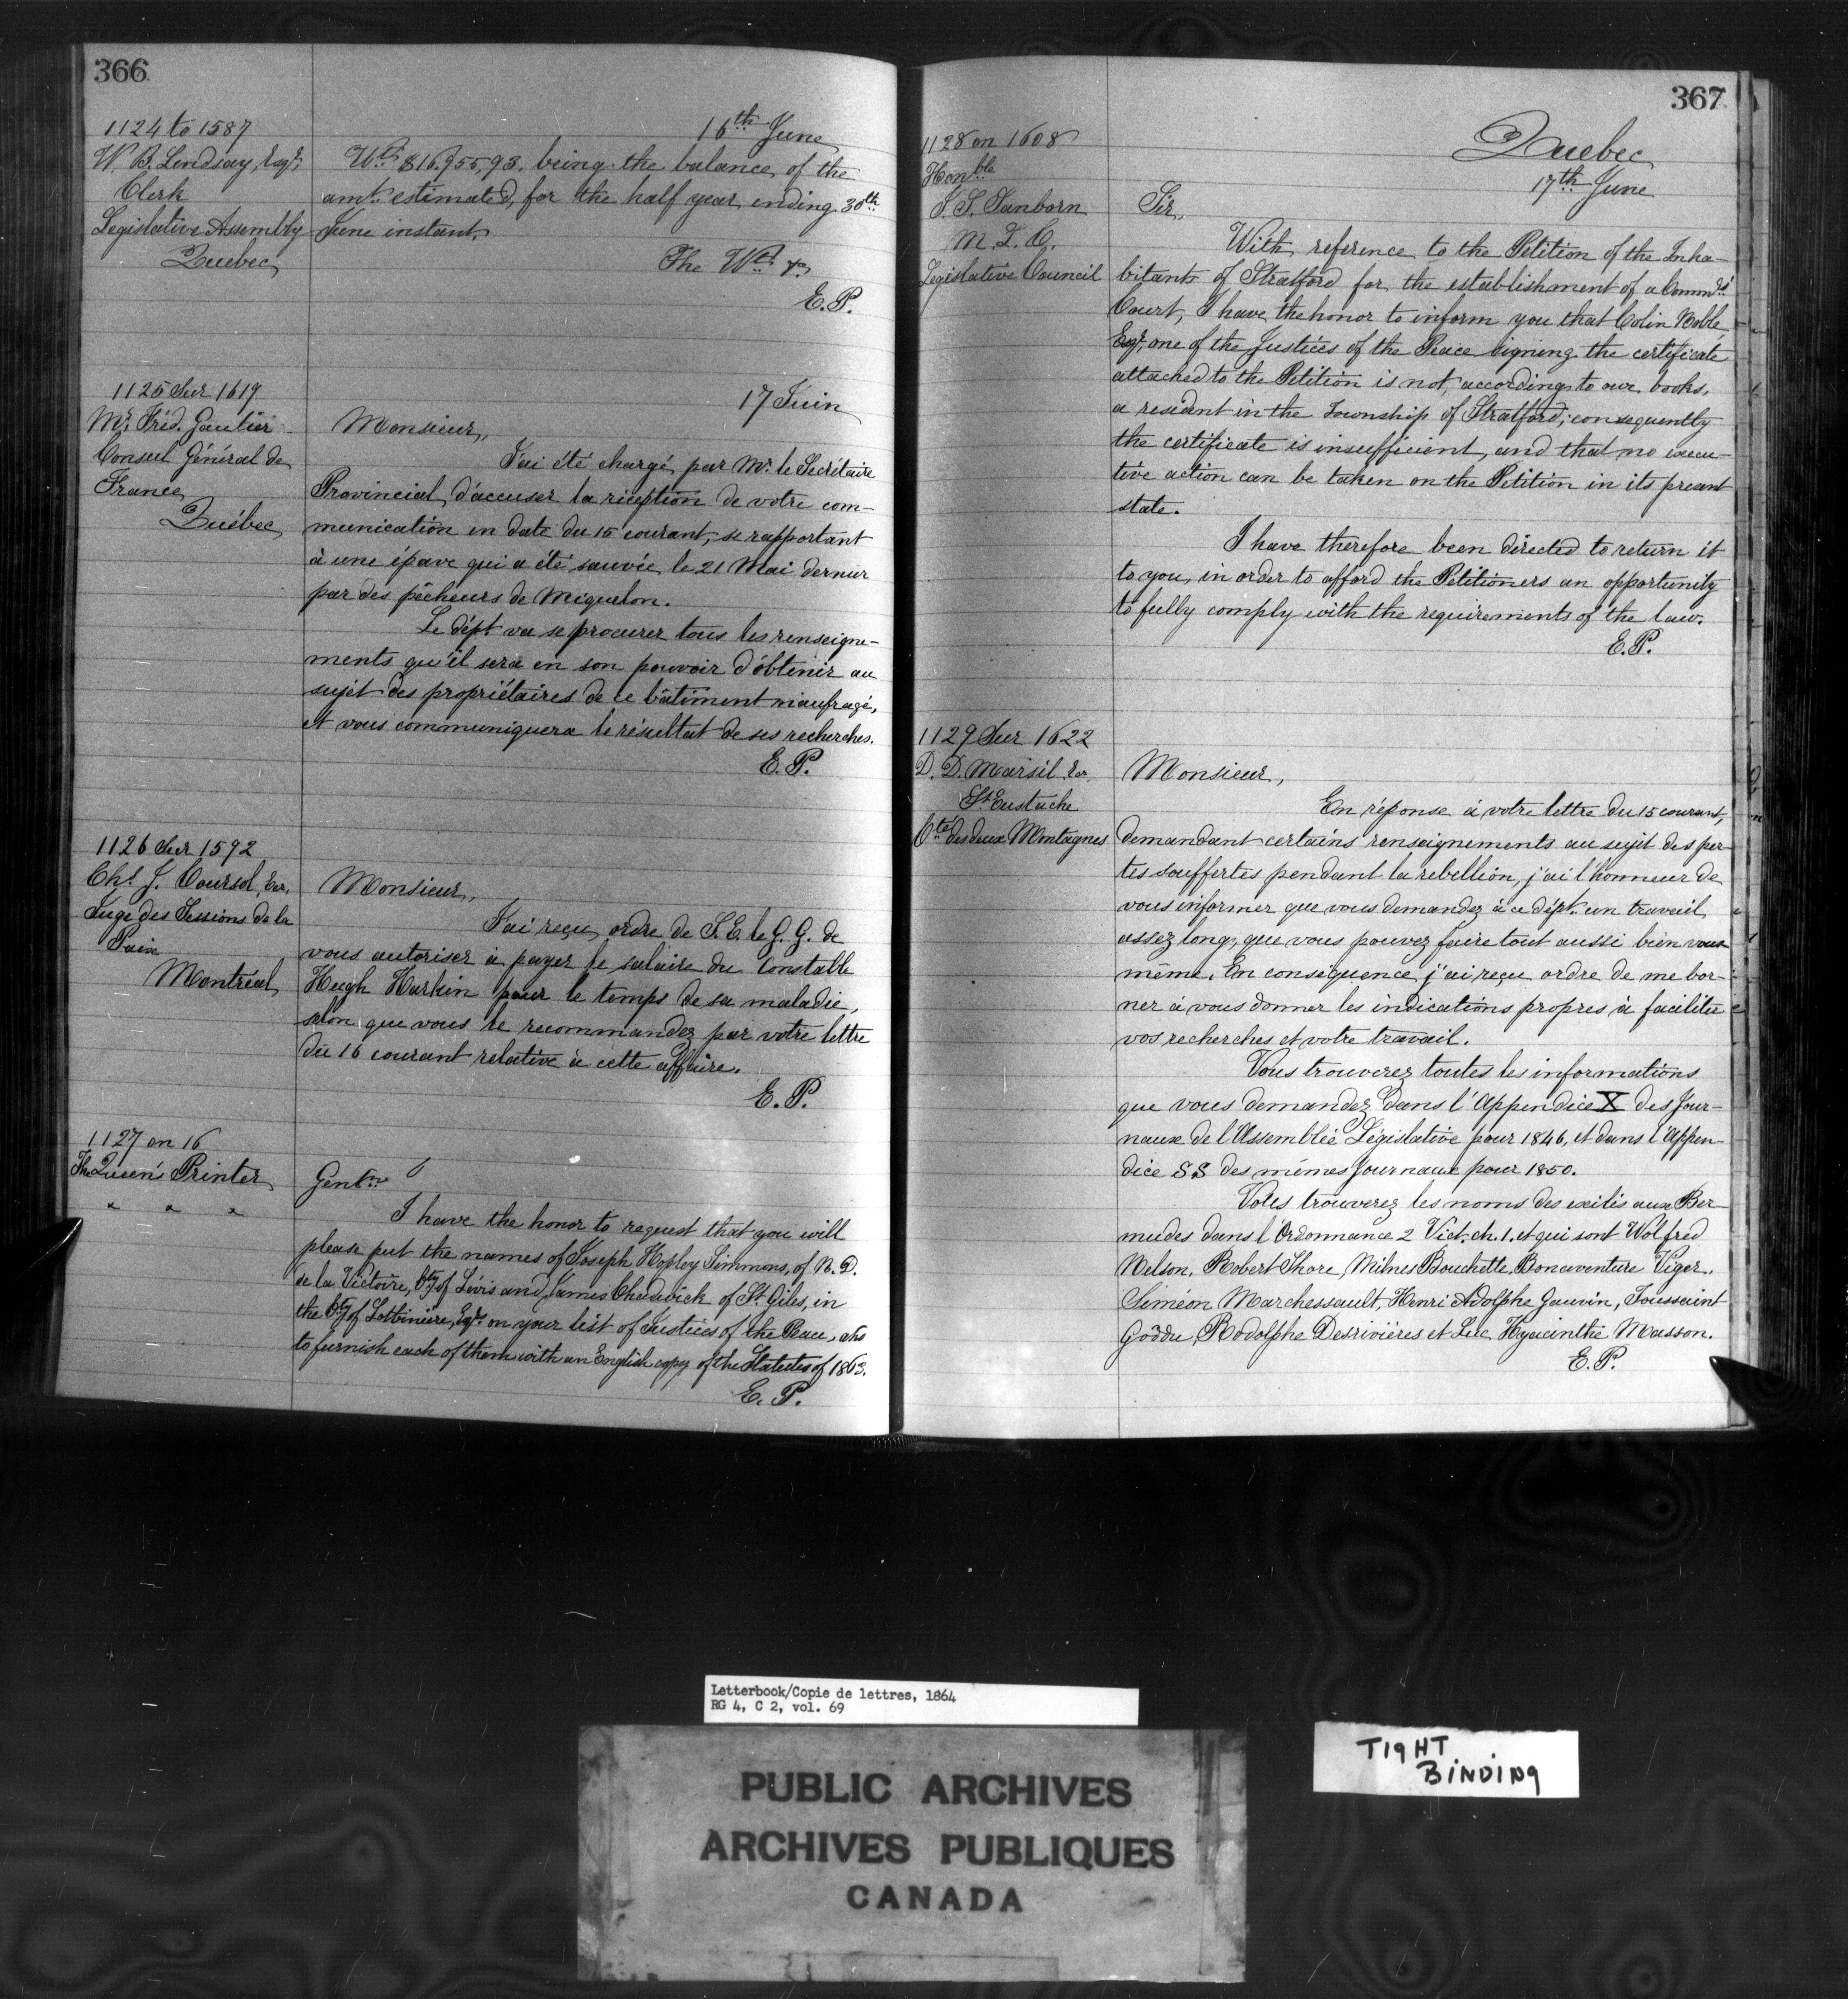 366
1124 to 1587
W. B. Lindsay, Esqr.
Clerk
Legislative Assembly
Quebec
16th June
Wt. $16,955,93. being the balance of the
amt. estimated, for the half year ending 30th
June instant.
The Wt. &c
E.P.
1125 Sur 1619
Mr. Fréd. Gautier
Consul Général de
France
Québec
17 Juin
Monsieur,
J'ai été chargé par Mr. le Secrétaire
Provincial, d'accuser la réception de votre com-
munication en date du 15 courant, se rapportant
à une épave qui a été sauvée le 21 Mai dernier
par des pêcheurs de Miquelon.
Le dépt. va se procurer tous les renseigne-
ments qu'il sera en son pouvoir d'obtenir au
sujet des propriétaires de ce bâtiment naufragé,
et vous communiquera le résultat de ses recherches.
E.P.
1126 Sur 1592
Chs. J. Coursol, Ecr.
Juge des Sessions de la
Paix
Montréal
Monsieur,
J'ai reçu ordre de S.E. le G.G. de
vous autoriser à payer le salaire du Constable
Hugh Harkin pour le temps de sa maladie,
selon que vous le recommandez par votre lettre
du 16 courant relative à cette affaire.
E.P.
1127 on 16
The Queen's Printer
" " "
Gentn.
I have the honor to request that you will
please put the names of Joseph Hopley Simmons, of N.D.
de la Victoire, Cty of Lévis and James Chadwick of St. Giles, in
the Cty of Lotbinière, Esqrs. on your list of Justices of the Peace, also
to furnish each of them with an English copy of the Statutes of 1863.
E.P.
367
1128 on 1608
Honble
J. S. Sanborn
M. L. C.
Legislative Council
Quebec
17th June
Sir,
With reference to the Petition of the Inha-
bitants of Stratford for the establishment of a Commrs'
Court, I have the honor to inform you that Colin Noble
Esqr. one of the Justices of the Peace signing the certificate
attached to the Petition is not, according to our books,
a resident in the Township of Stratford; consequently
the certificate is insufficient, and that no execu-
tive action can be taken on the Petition in its present
state.
I have therefore been directed to return it
to you, in order to afford the Petitioners an opportunity
to fully comply with the requirements of the law.
E.P.
1129 Sur 1622
D. D. Marsil Ecr.
St. Eustache
Cté des deux Montagnes
Monsieur,
En réponse à votre lettre du 15 courant,
demandant certains renseignements au sujet des per-
tes souffertes pendant la rebellion, j'ai l'honneur de
vous informer que vous demandez à ce dépt. un travail
assez long, que vous pouvez faire tout aussi bien vous
même. En conséquence j'ai reçu ordre de me bor-
ner à vous donner les indications propres à faciliter
vos recherches et votre travail.
Vous trouverez toutes les informations
que vous demandez dans l'Appendice X des Jour-
naux de l'Assemblée Législative pour 1846, et dans l'Appen-
dice SS des mêmes Journaux pour 1850.
Vous trouverez les noms des exilés aux Ber-
mudes dans l'Ordonnance 2 Vict. ch. 1. et qui sont Wolfred
Nelson, Robert Shore Milnes Bouchette, Bonaventure Viger,
Siméon Marchessault, Henri Adolphe Gauvin, Toussaint
Goddu, Rodolphe Desrivières et Luc Hyacinthe Masson.
E.P.
Letterbook/Copie de lettres, 1864
RG 4, C 2, vol. 69
PUBLIC ARCHIVES
ARCHIVES PUBLIQUES
CANADA
TIGHT
BINDING